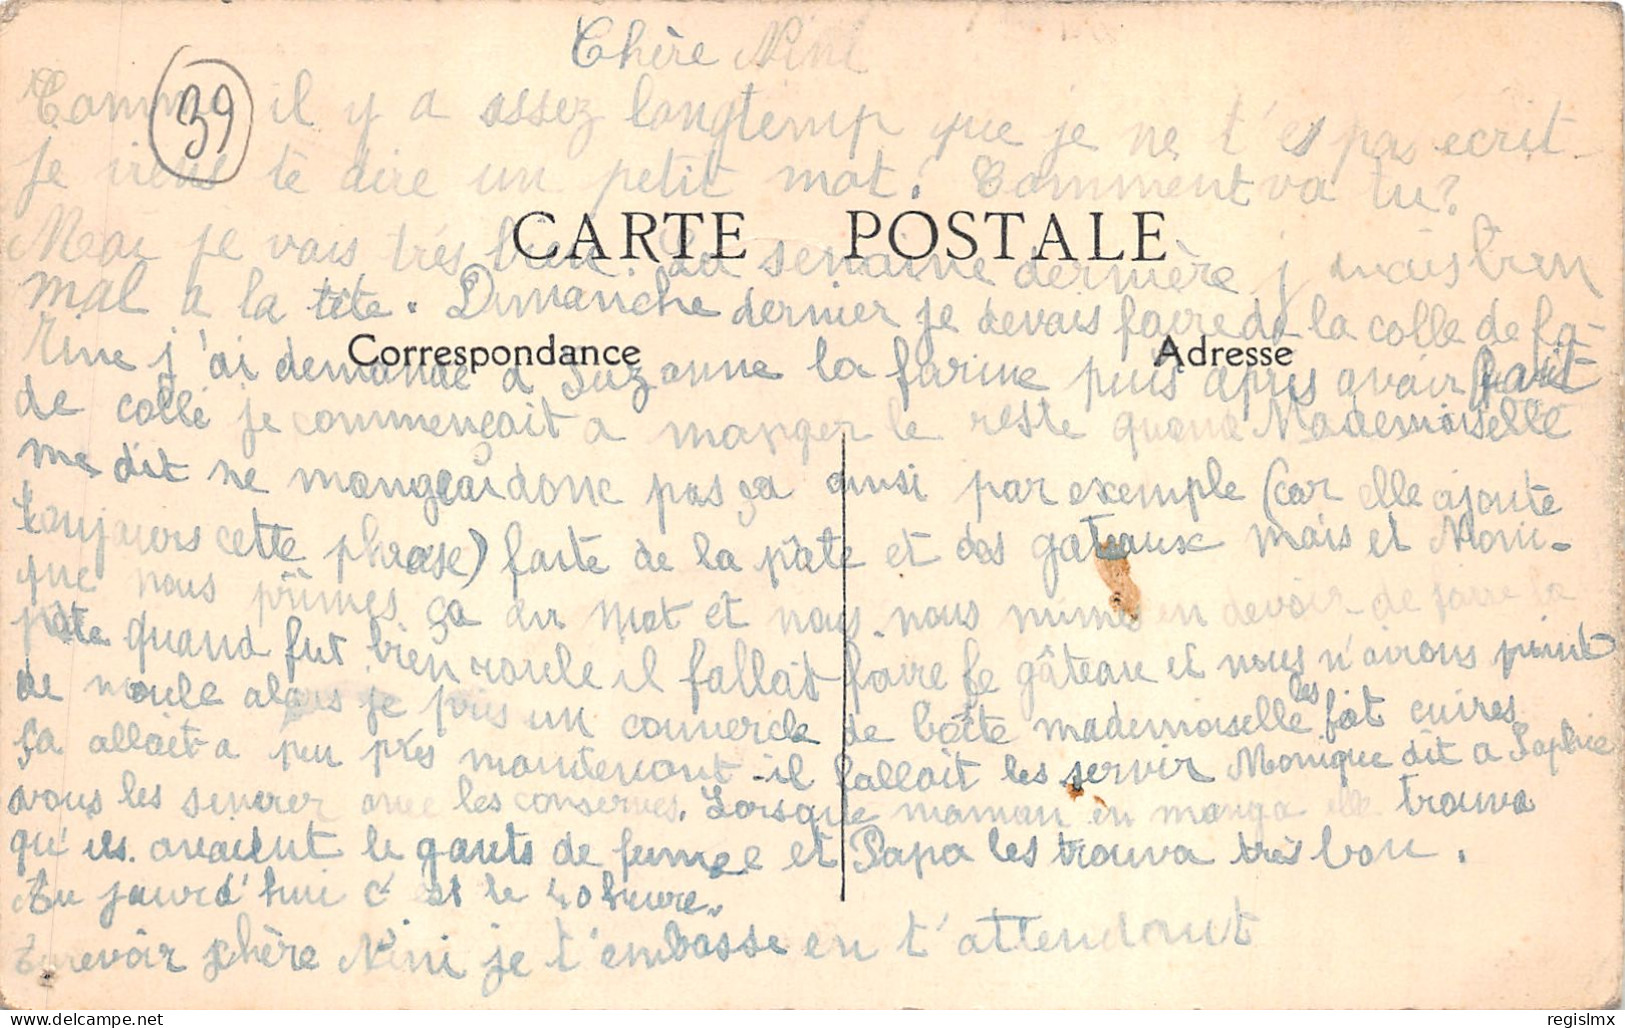 Chère Nini
39
Comme il y a assez longtemp que je ne t'es pas ecrit
Je viens te dire un petit mot. Comment va tu?
CARTE POSTALE
Moi je vais très bien. La semaine dernière j'avais bien
mal a la tête. Dimanche dernier je devais faire de la colle de fa-
Correspondance
Adresse
rine j'ai demandé a Suzanne la farine puis apres avoir fait
de collé je commençait a manger le reste quand Mademoiselle
me dit ne mangeai donc pas ça ainsi par exemple (car elle ajoute
toujours cette phrase) faite de la pâte et des gateaux mais et Moni-
que nous prîmes ça au mot et nous nous mîmes en devoir de faire la
pâte quand fut bien roule il fallait faire le gâteau et nous n'avions point
de moule alors je pris un couvercle de boîte mademoiselle les fait cuires
ça allait a peu près maintenant il fallait les servir Monique dit a Sophie
vous les sucrer avec les conserves. Lorsque maman en manga elle trouva
qu'ils avaient le gouts de fumee et Papa les trouva très bon.
Au jourd'hui c'est le 40 heure.
Aurevoir chère Nini je t'embasse en t'attendant
delcampe.net
regislmx